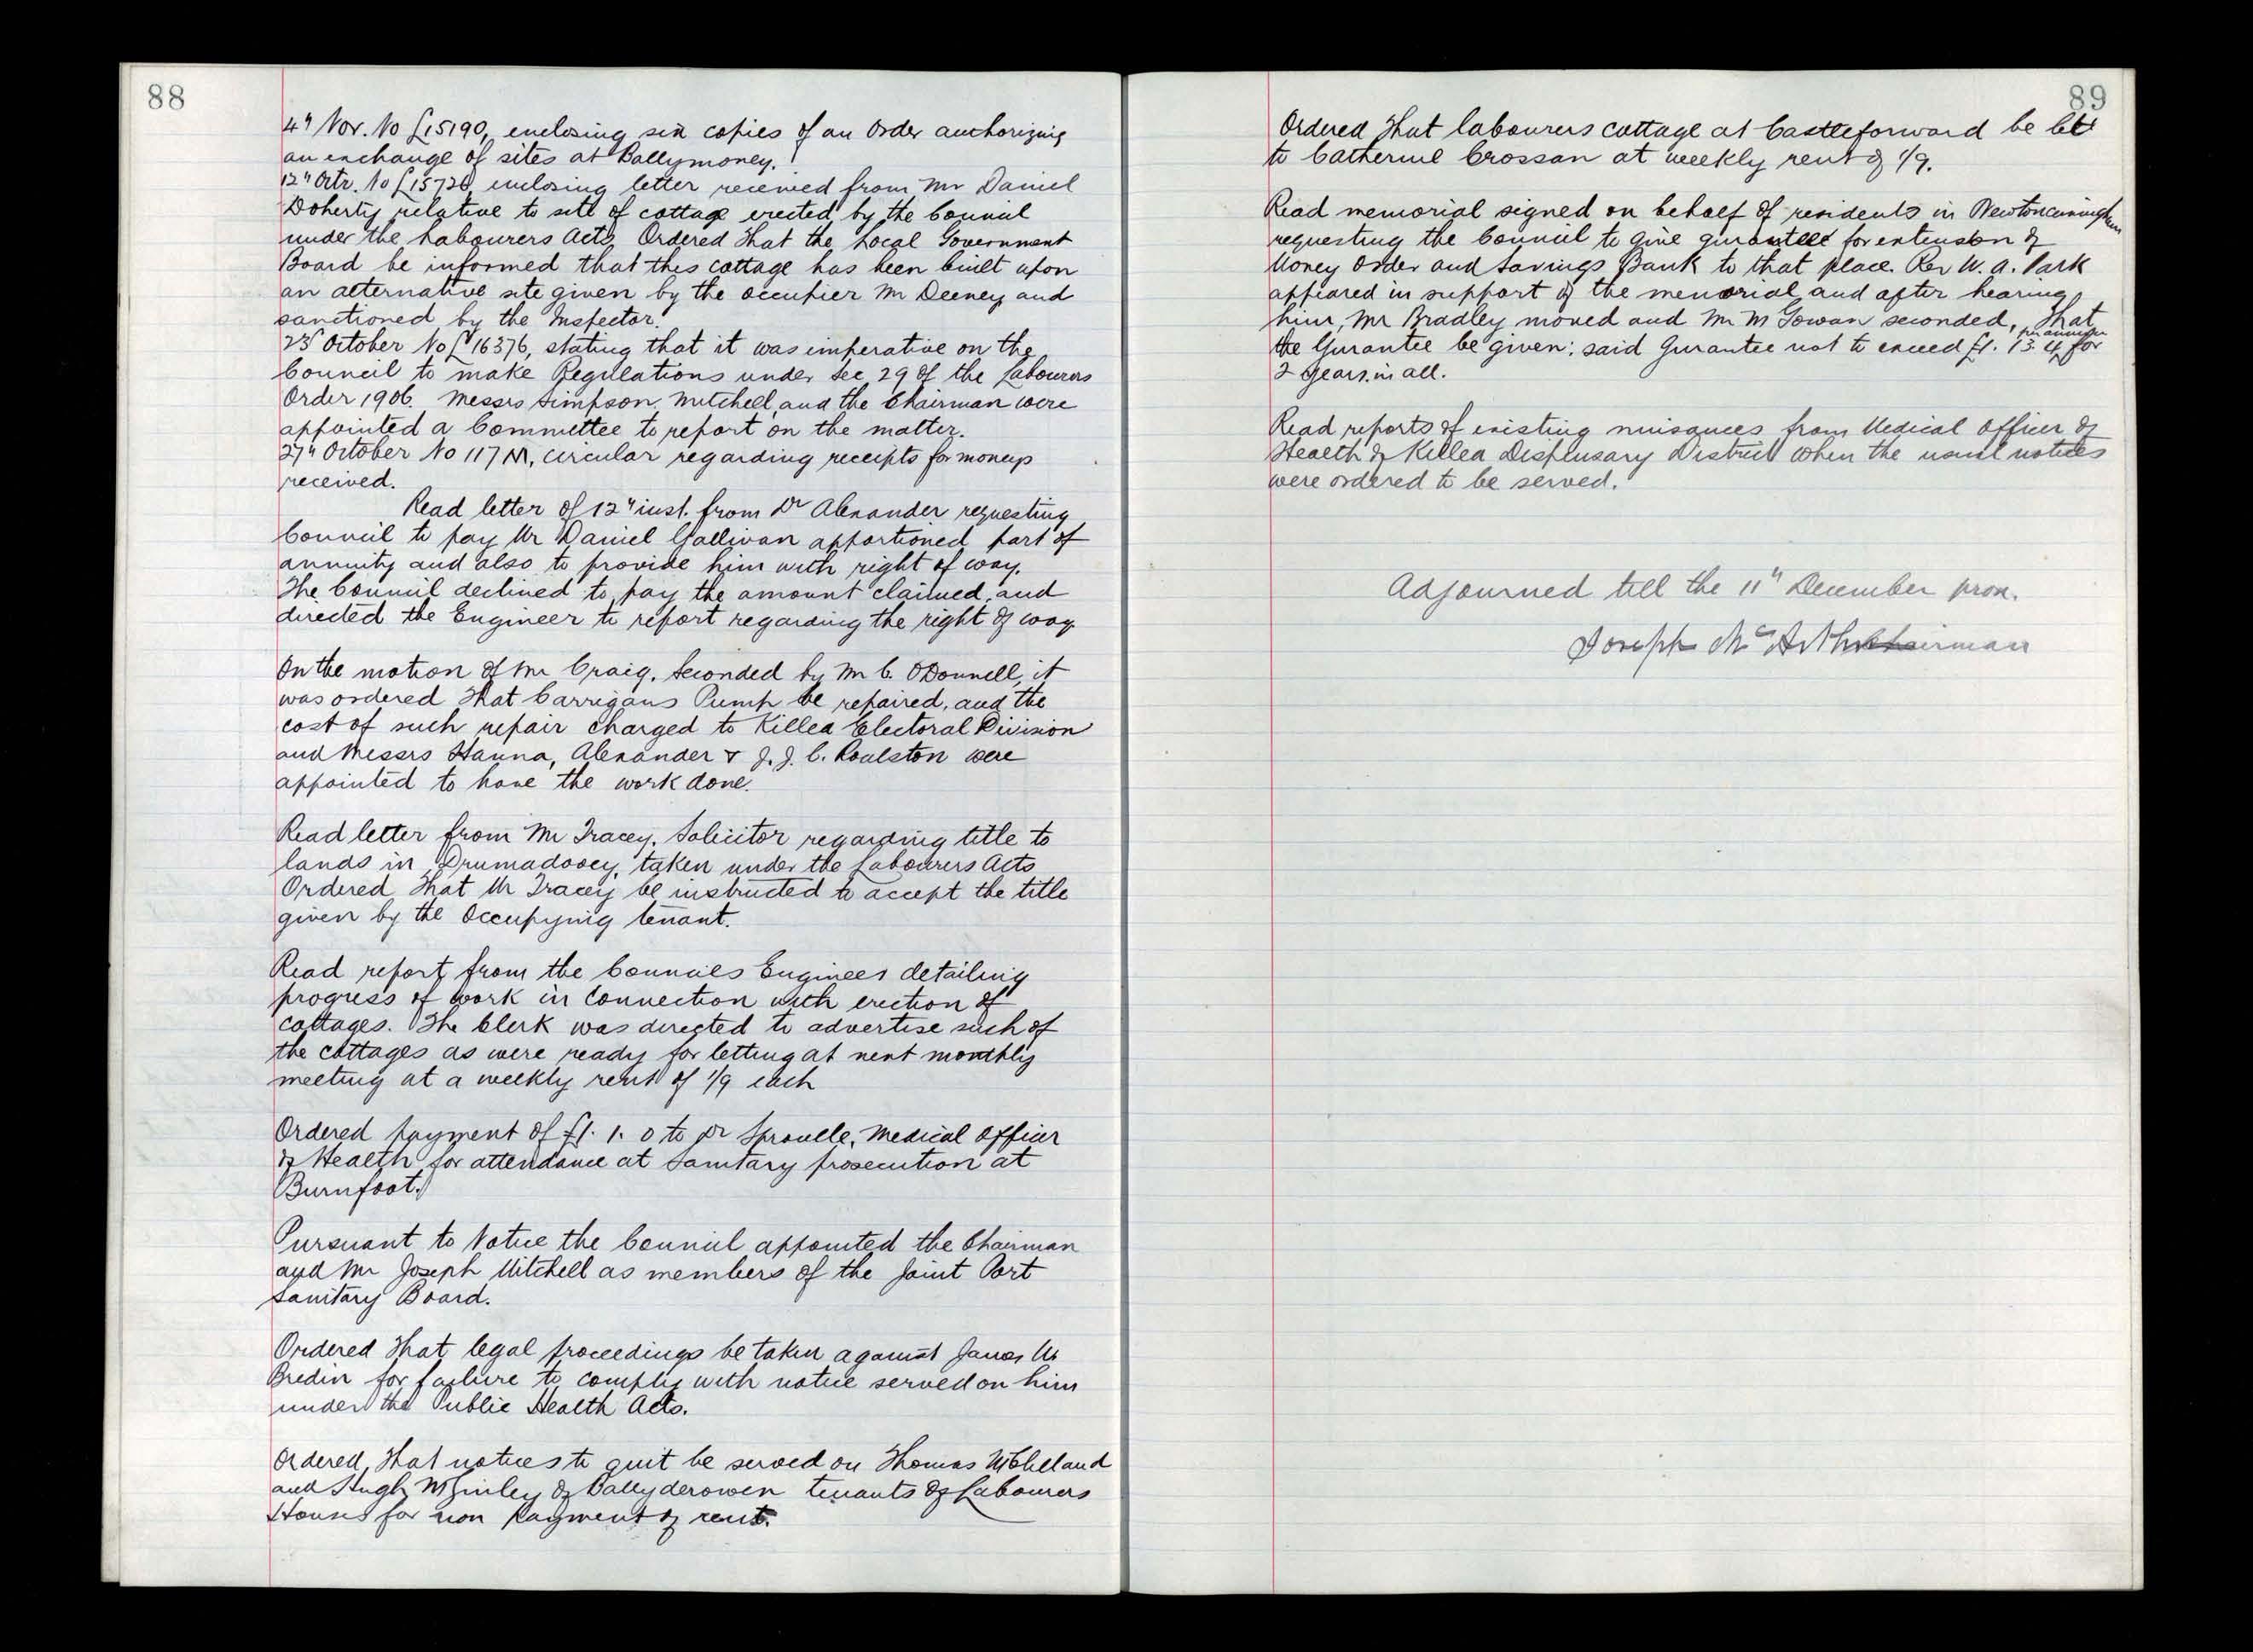 88
4" Nov. No L15190, enclosing six copies of an Order authorizing
an exchange of sites at Ballymoney.
12" Octr. No L15720, enclosing letter received from Mr Daniel
Doherty relative to site of cottage erected by the Council
under the Labourers Acts, Ordered That the Local Government
Board be informed that this cottage has been built upon
an alternative site given by the occupier Mr Deeney and
sanctioned by the Inspector.
23rd October No L 16376, stating that it was imperative on the
Council to make Regulations under Sec 29 of the Labourers
Order 1906. Messrs Simpson, Mitchell, and the Chairman were
appointed a Committee to report on the matter.
27" October No 117 M, circular regarding receipts for moneys
received.
Read letter of 12" inst. from Dr Alexander requesting
Council to pay Mr Daniel Gallivan apportioned part of
annuity and also to provide him with right of way.
The Council declined to pay the amount claimed, and
directed the Engineer to report regarding the right of way
On the motion of Mr Craig, Seconded by Mr C. ODonnell, it
was ordered That Carrigans Pump be repaired, and the
cost of such repair charged to Killea Electoral Division
and Messrs Hanna, Alexander & J. J. C. Roulston were
appointed to have the work done.
Read letter from Mr Tracey, Solicitor regarding title to
lands in Drumadooey, taken under the Labourers Acts
Ordered That Mr Tracey be instructed to accept the title
given by the Occupying tenant.
Read report from the Councils Engineer detailing
progress of work in connection with erection of
cottages. The Clerk was directed to advertise such of
the cottages as were ready for letting at next monthly
meeting at a weekly rent of 1/9 each
Ordered payment of £1. 1. 0 to Dr Sproulle, Medical Officer
of Health for attendance at Sanitary prosecution at
Burnfoot.
Pursuant to Notice the Council appointed the Chairman
and Mr Joseph Mitchell as members of the Joint Port
Sanitary Board.
Ordered That legal proceedings be taken against James Mc
Bredin for failure to comply with notice served on him
under the Public Health Acts.
Ordered, That notices to quit be served on Thomas McClelland
and Hugh McGinley of Ballyderowen tenants of Labourers
Houses for non payment of rent.
89
Ordered That labourers cottage at Castleforward be let
to Catherine Crossan at weekly rent of 1/9.
Read memorial signed on behalf of residents in Newtoncunningham
requesting the Council to give gurantee for extension of
Money Order and Savings Bank to that place. Rev W. A. Park
appeared in support of the memorial and after hearing
him, Mr Bradley moved and Mr McGowan seconded, That
the Gurantee be given: said Gurantee not to exceed £1. 13. 4 per annum for
2 years in all.
Read reports of existing nuisances from Medical Officer of
Health of Killea Dispensary District when the usual notices
were ordered to be served.
Adjourned till the 11" December prox.
Joseph McArthur Chairman